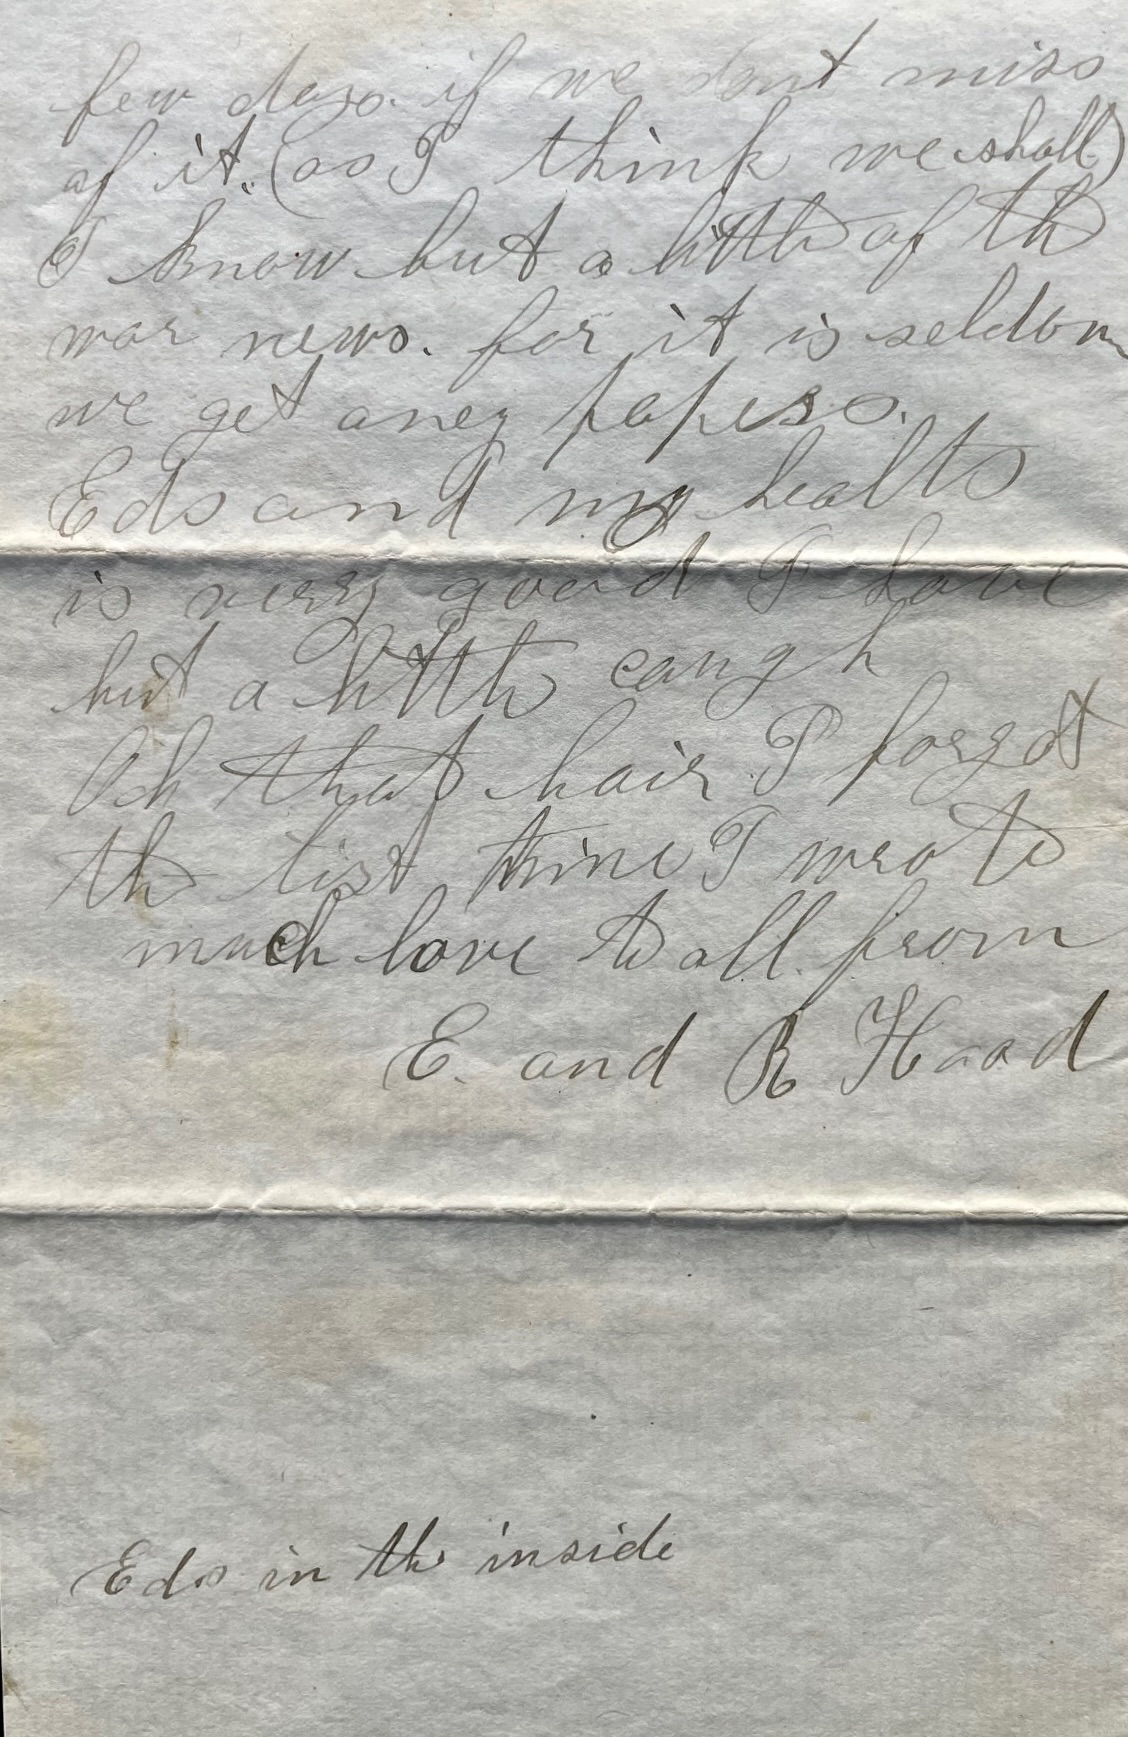 few days. if we dont miss
of it. (as I think we shall)
I know but a little of the
war news. for it is seldom
we get aney papers.
Eds and my healts
is very good I have
but a little caugh
Och that hair I forgot
the list time I wrote
much love to all. from
E. and R Hood
Eds in the inside